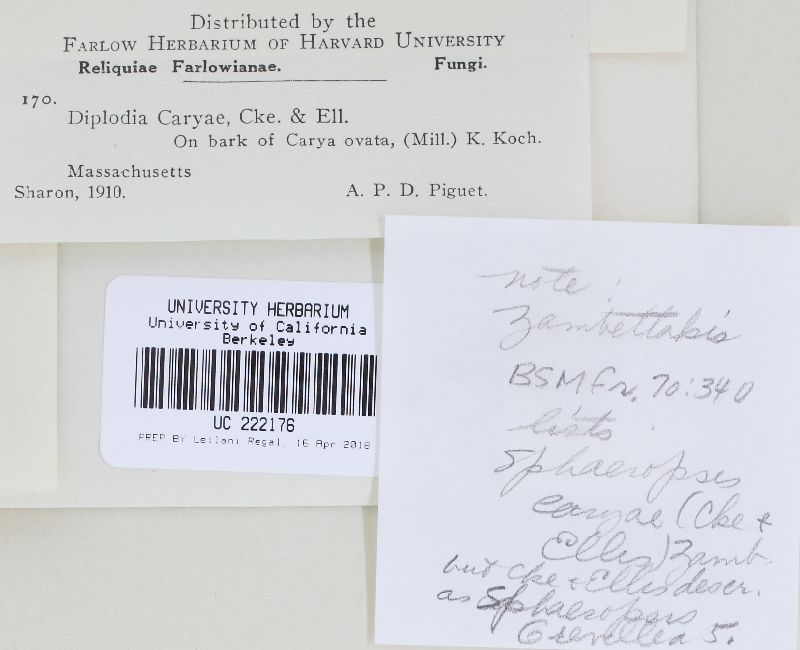 Distributed by the
FARLOW HERBARIUM OF HARVARD UNIVERSITY
Reliquiae Farlowianae. Fungi.
170.
Diplodia Caryae, Cke. & Ell.
On bark of Carya ovata, (Mill.) K. Koch.
Massachusetts
Sharon, 1910. A. P. D. Piguet.
UNIVERSITY HERBARIUM
University of California
Berkeley
UC 222176
PREP BY Leilani Regal, 16 Apr 2018
note:
Zambettakis
BSMFr. 70:340
lists
Sphaeropsis
caryae (Cke +
Ellis) Zamb.
but Cke + Ellis descr.
as Sphaeropsis
Grevillea 5.